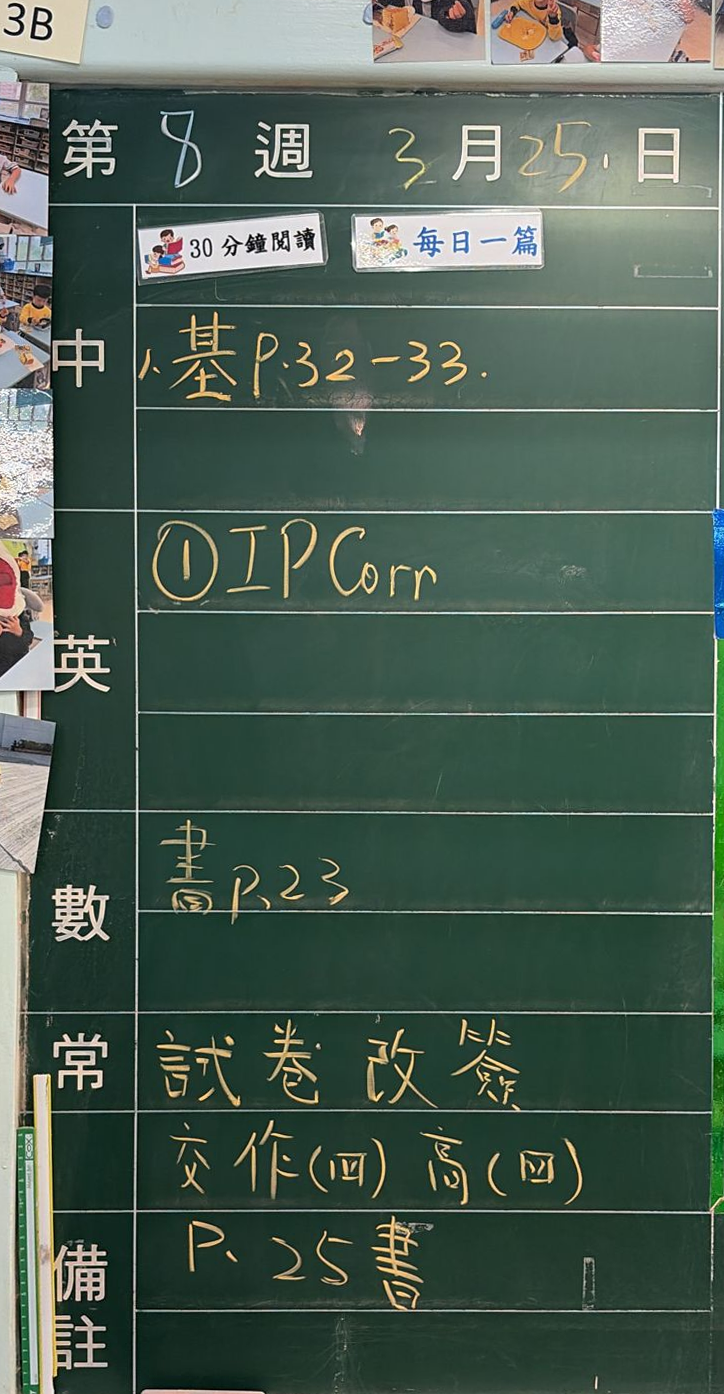 3B
第 8 週 3 月 25 日
30分鐘閱讀 每日一篇
中
1. 基 P.32-33.
英
① IP Corr
數
書 P.23
常
試卷改簽
交作(四) 高(四)
備註
P. 25 書